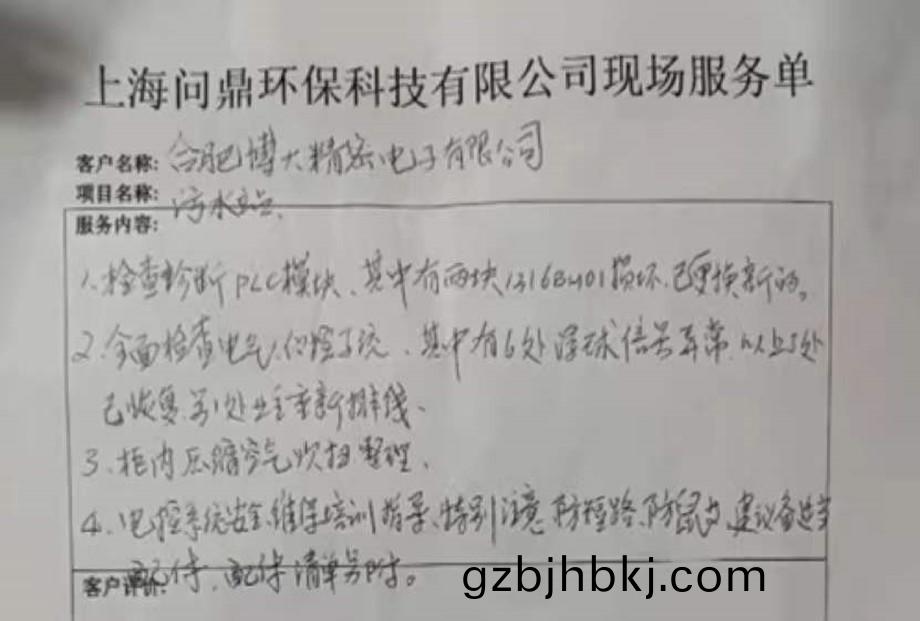 上海问鼎环保科技有限公司现场服务单
客户名称: 合肥博大精密电子有限公司
项目名称: 污水站
服务内容:
1、检查诊断PLC模块、其中有两块1316BM01损坏已更换新的。
2、全面检查电气、仪控系统、其中有6处浮球信号异常、以上5处
已恢复、另1处业主重新排线、
3、柜内压缩空气吹扫整理、
4、电控系统安全、维保培训指导、特别注意防短路、防鼠、建议备
配件、配件清单另附。
客户评价:
gzbjhbkj.com